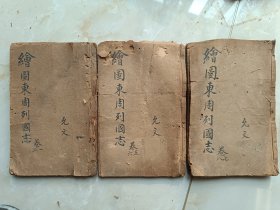 繪圖東周列國志
卷
允文
繪圖東周列國志
卷
允文
繪圖東周列國志
卷
允文